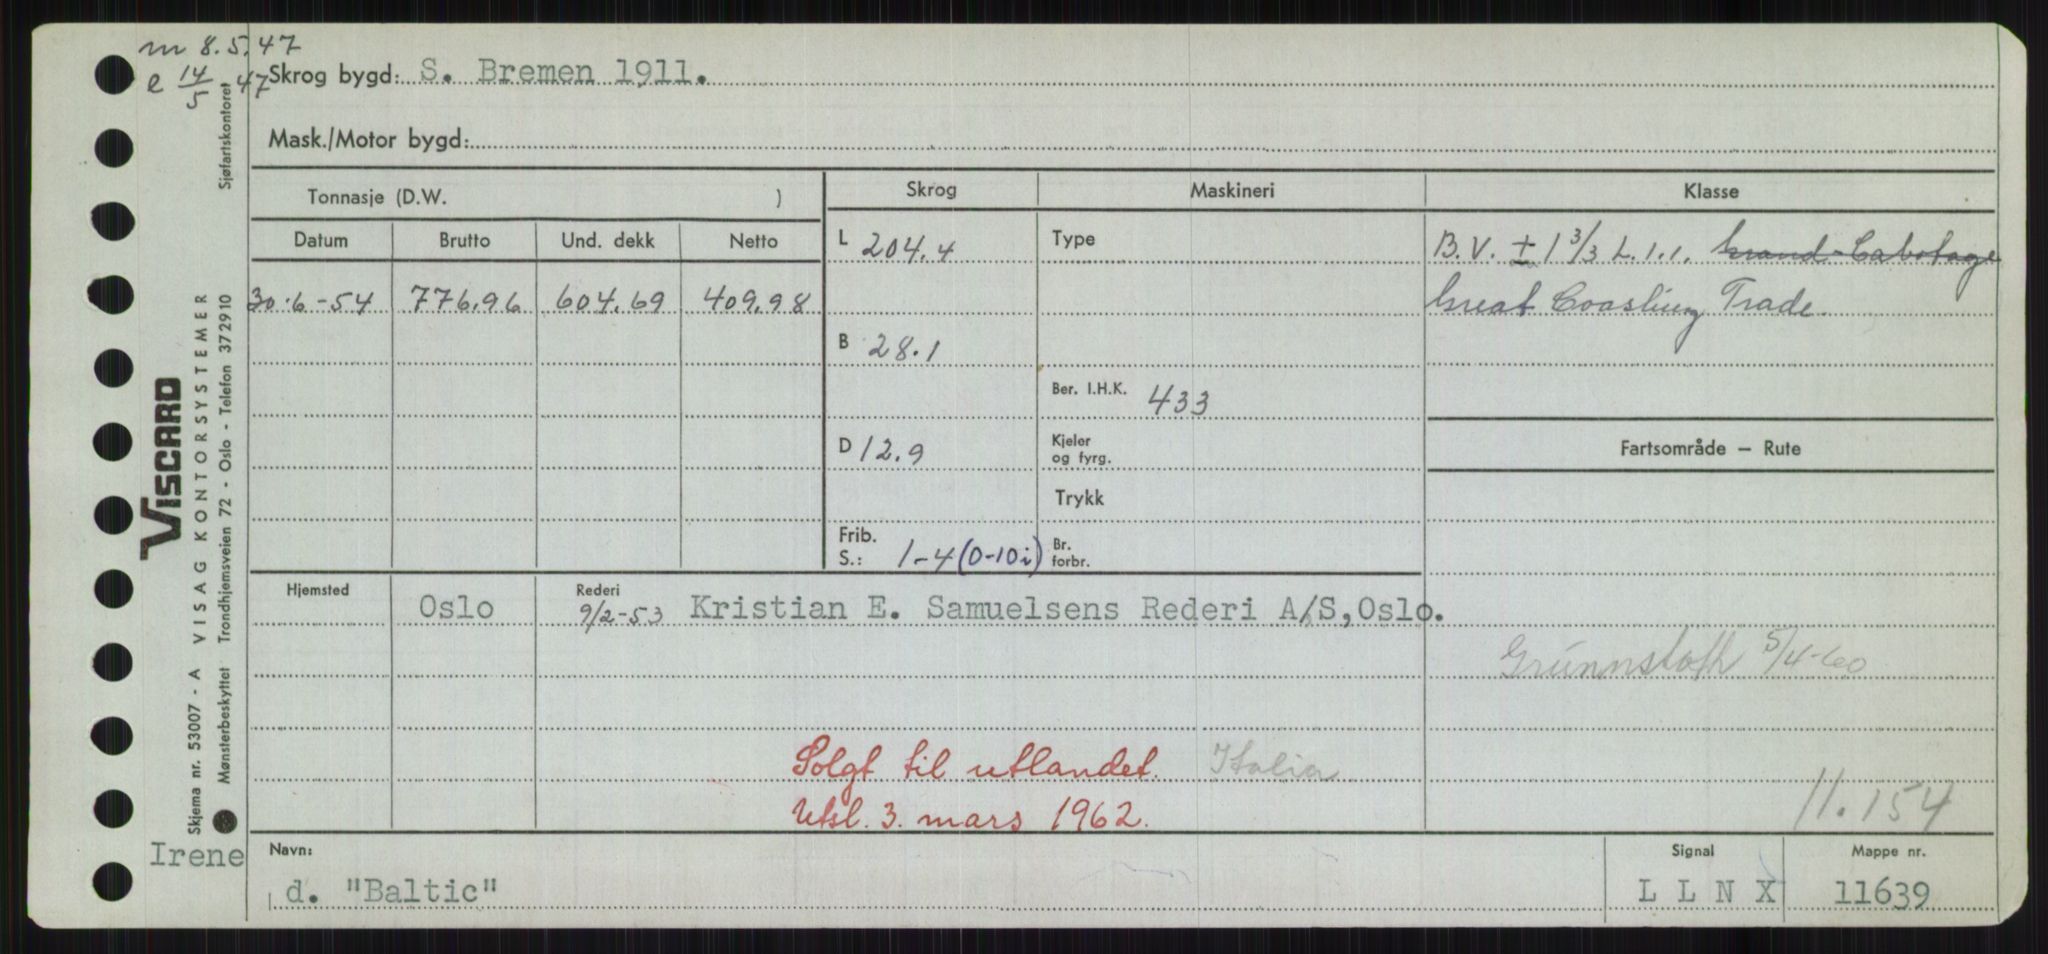 m 8.5.47
e 14/5 - 47
Skrog bygd: S. Bremen 1911.
Mask./Motor bygd:
Tonnasje (D.W. )
Skrog
Maskineri
Klasse
Datum Brutto Und. dekk Netto
L 204.4
Type
B.V. ± 1 3/3 L.1.1. Grand-Cabotage
30.6-54 776.96 604.69 409.98
Great Coasting Trade
B 28.1
Ber. I.H.K. 433
D 12.9
Kjeler
og fyrg.
Fartsområde – Rute
Trykk
Frib.
S.: 1-4 (0-10i)
Br.
forbr.
Hjemsted Oslo
Rederi
9/2-53 Kristian E. Samuelsens Rederi A/S, Oslo.
5/4-60
Solgt til utlandet. Italia
Utsl. 3. mars 1962.
11.154
Irene
Navn:
d. "Baltic"
Signal
L L N X
Mappe nr.
11639
Skjema nr. 53007 - A VISAG KONTORSYSTEMER
VISCARD
Mønsterbeskyttet Trondhjemsveien 72 - Oslo - Telefon 372910
Sjøfartskontoret